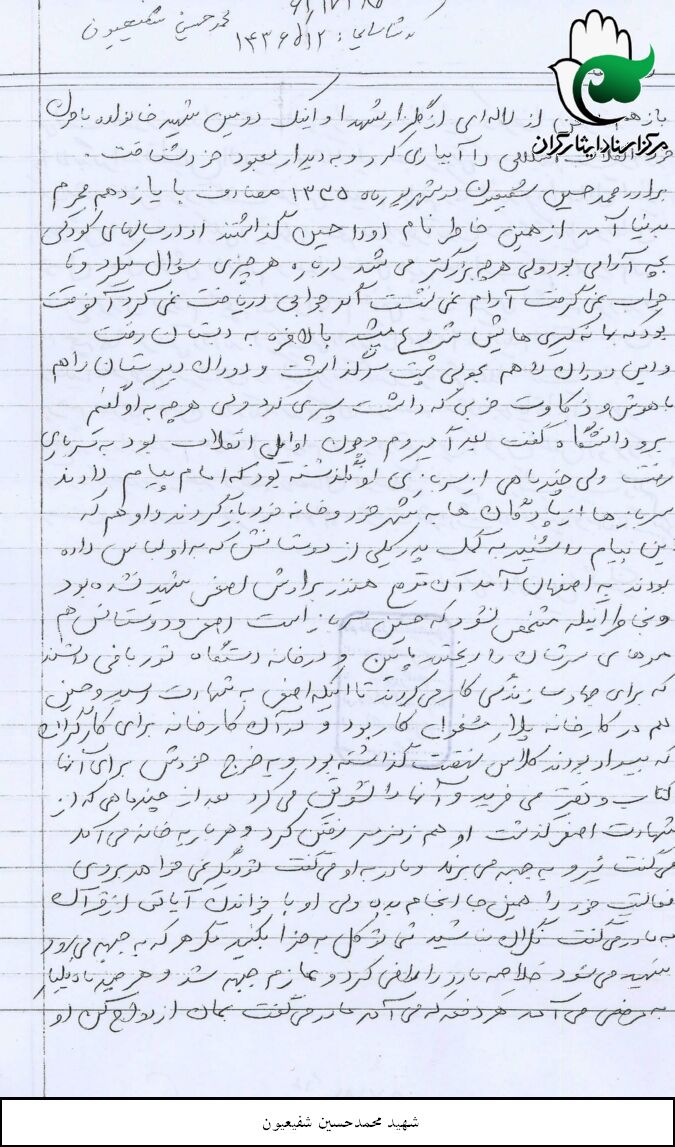 محمد حسین شفیعیون
کد شناسایی: ۱۴۳۶۵۱۲
مرکز اسناد ایثارگران
باز هم از لاله‌ای از گلزار شهدا و اینک دومین شهید خانواده با خون
خود انقلاب اسلامی را آبیاری کرد و به دیدار معبود خود شتافت.
برادر محمد حسین شفیعیون در شهریور ماه ۱۳۳۵ مصادف با یازدهم محرم
بدنیا آمد از همین خاطر نام او را حسین گذاشتند او در سالهای کودکی
بچه آرامی بود ولی هرچه بزرگتر می شد درباره هر چیزی سؤال میکرد و تا
جواب نمی گرفت آرام نمی نشست اگر جوابی دریافت نمی کرد آنوقت
بود که بهانه گیری هایش شروع میشد بالاخره به دبستان رفت
و این دوران را هم بخوبی پشت سر گذاشت و دوران دبیرستان را هم
با هوش و ذکاوت خوبی که داشت سپری کرد ولی هرچه به او گفتیم
برو دانشگاه گفت بعد آ میروم و چون اوایل انقلاب بود به سربازی
رفت ولی چند ماهی از سربازی او نگذشته بود که امام پیام دادند
سربازها از پادگان ها به شهر خود و خانه خود باز گردند و او هم که
این پیام را شنید به کمک پدر یکی از دوستانش که به او لباس داده
بودند به اصفهان آمد آن موقع هنوز برادرش اصغر شهید نشده بود
و بخاطر اینکه مشخص نشود که حسین سرباز است اصغر و دوستانش هم
موهای سرشان را ریختند پایین و در خانه دستگاه تور بافی داشتند
که برای جهاد سازندگی کار می کردند تا اینکه اصغر به شهادت رسید و حسین
هم در کارخانه پلار مشغول کار بود و در آن کارخانه برای کارگران
که بیسواد بودند کلاس نهضت گذاشته بود و به خرج خودش برای آنها
کتاب و دفتر می خرید و آنها را تشویق می کرد بعد از چند ماهی که از
شهادت اصغر گذشت او هم زمزمه رفتن کرد و هر بار به خانه می آمد
می گفت نیرو به جبهه می برند و مادر به او می گفت تو دیگر نمی خواهد بروی
فعالیت خود را همین جا انجام بده ولی او با خواندن آیاتی از قرآن
به مادر می گفت نگران نباشید شما توکل به خدا بکنید مگر هر که به جبهه می رود
شهید می شود خلاصه مادر را راضی کرد و عازم جبهه شد و هر چند ماه یکبار
به مرخصی می آمد هر دفعه که می آمد مادر می گفت بمان ازدواج کن او
شهید محمدحسین شفیعیون